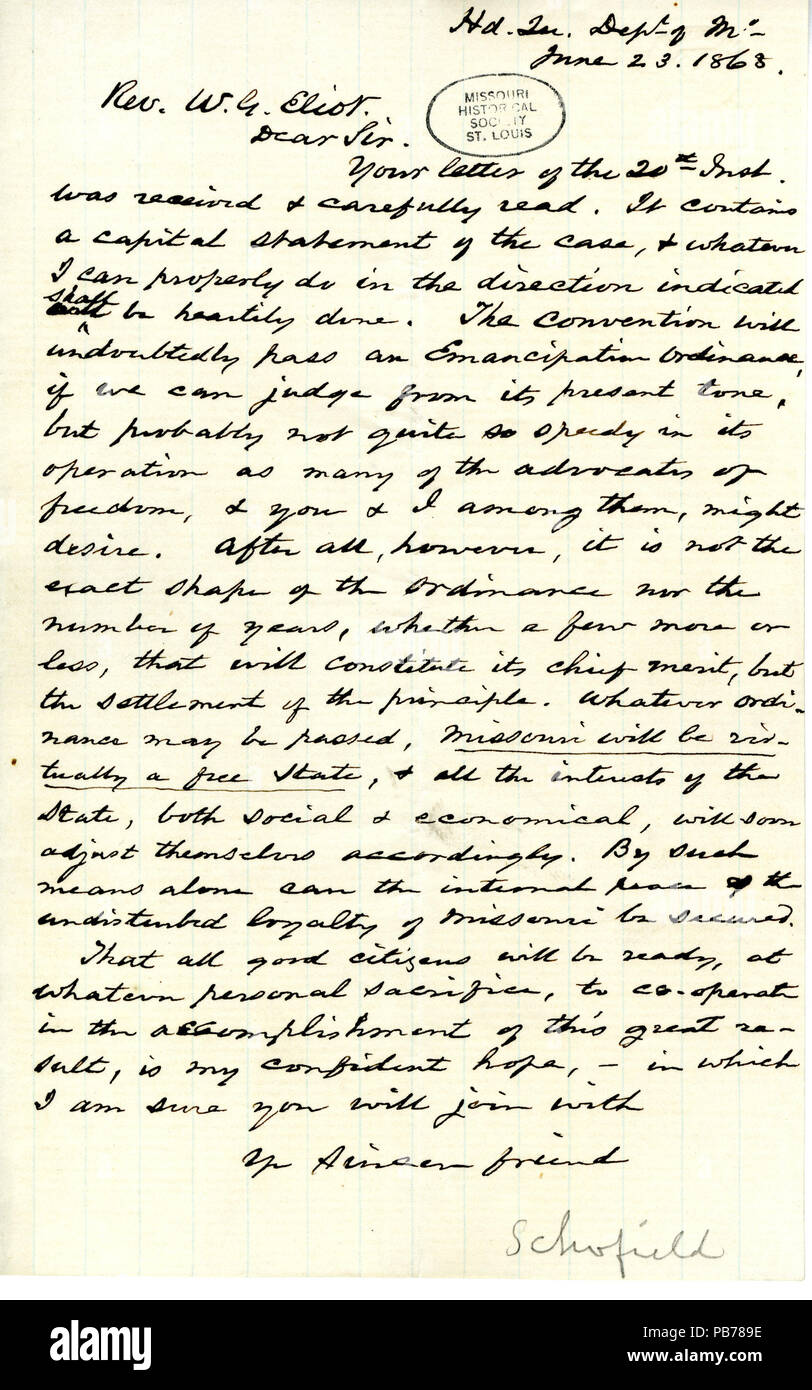 Hd. Qu. Dept. of Mo.
June 23. 1863.
MISSOURI
HISTORICAL
SOCIETY
ST. LOUIS
Rev. W. G. Eliot.
Dear Sir.
Your letter of the 20th Inst.
was received & carefully read. It contains
a capital statement of the case, & whatever
I can properly do in the direction indicated
shall
be heartily done. The Convention will
undoubtedly pass an Emancipation Ordinance,
if we can judge from its present tone,
but probably not quite so speedy in its
operation as many of the advocates of
freedom, & you & I among them, might
desire. After all, however, it is not the
exact shape of the ordinance nor the
number of years, whether a few more or
less, that will constitute its chief merit, but
the settlement of the principle. Whatever ordi-
nance may be passed, Missouri will be vir-
tually a free State, & all the interests of the
State, both social & economical, will soon
adjust themselves accordingly. By such
means alone can the internal peace & the
undisturbed loyalty of Missouri be secured.
That all good citizens will be ready, at
whatever personal sacrifice, to co-operate
in the accomplishment of this great re-
sult, is my confident hope, – in which
I am sure you will join with
Yr sincere friend
Schofield
alamy
Image ID: PB789E
www.alamy.com